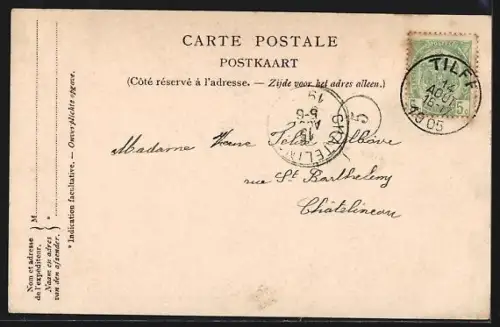 CARTE POSTALE
POSTKAART
(Côté réservé à l'adresse. — Zijde voor het adres alleen.)
TILFF
14
AOUT
1905
5c
CHATELINEAU
15
5-6
19
5
Madame Félix
rue St Barthelemy
Châtelineau
Nom et adresse
de l'expéditeur.
Naam en adres
van den afzender.
M
* Indication facultative. — Onverplichte opgave.